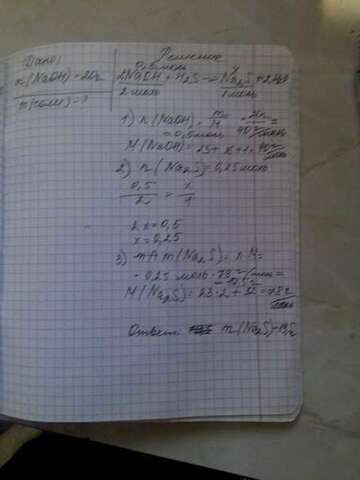 Дано:
m(NaOH) = 20г
m(соли) - ?
Решение
0,5 моль
2NaOH + H₂S → Na₂S + 2H₂O
2 моль 1 моль
1) n(NaOH) =
= 0,5 моль
M(NaOH) =
2) n(Na₂S) = 0,25 моль
0,5/2 = x/1
2x = 0,5
x = 0,25
3) m(Na₂S) = n·M =
= 0,25 моль · 78 г/моль =
M(Na₂S) = 23·2 + 32 = 78 г/моль
Ответ: m(Na₂S)